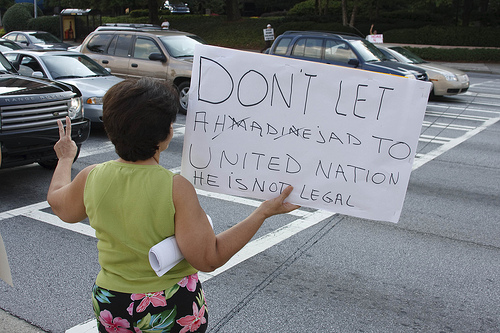 DON'T LET
AHMADINEJAD TO
UNITED NATION
HE IS NOT LEGAL